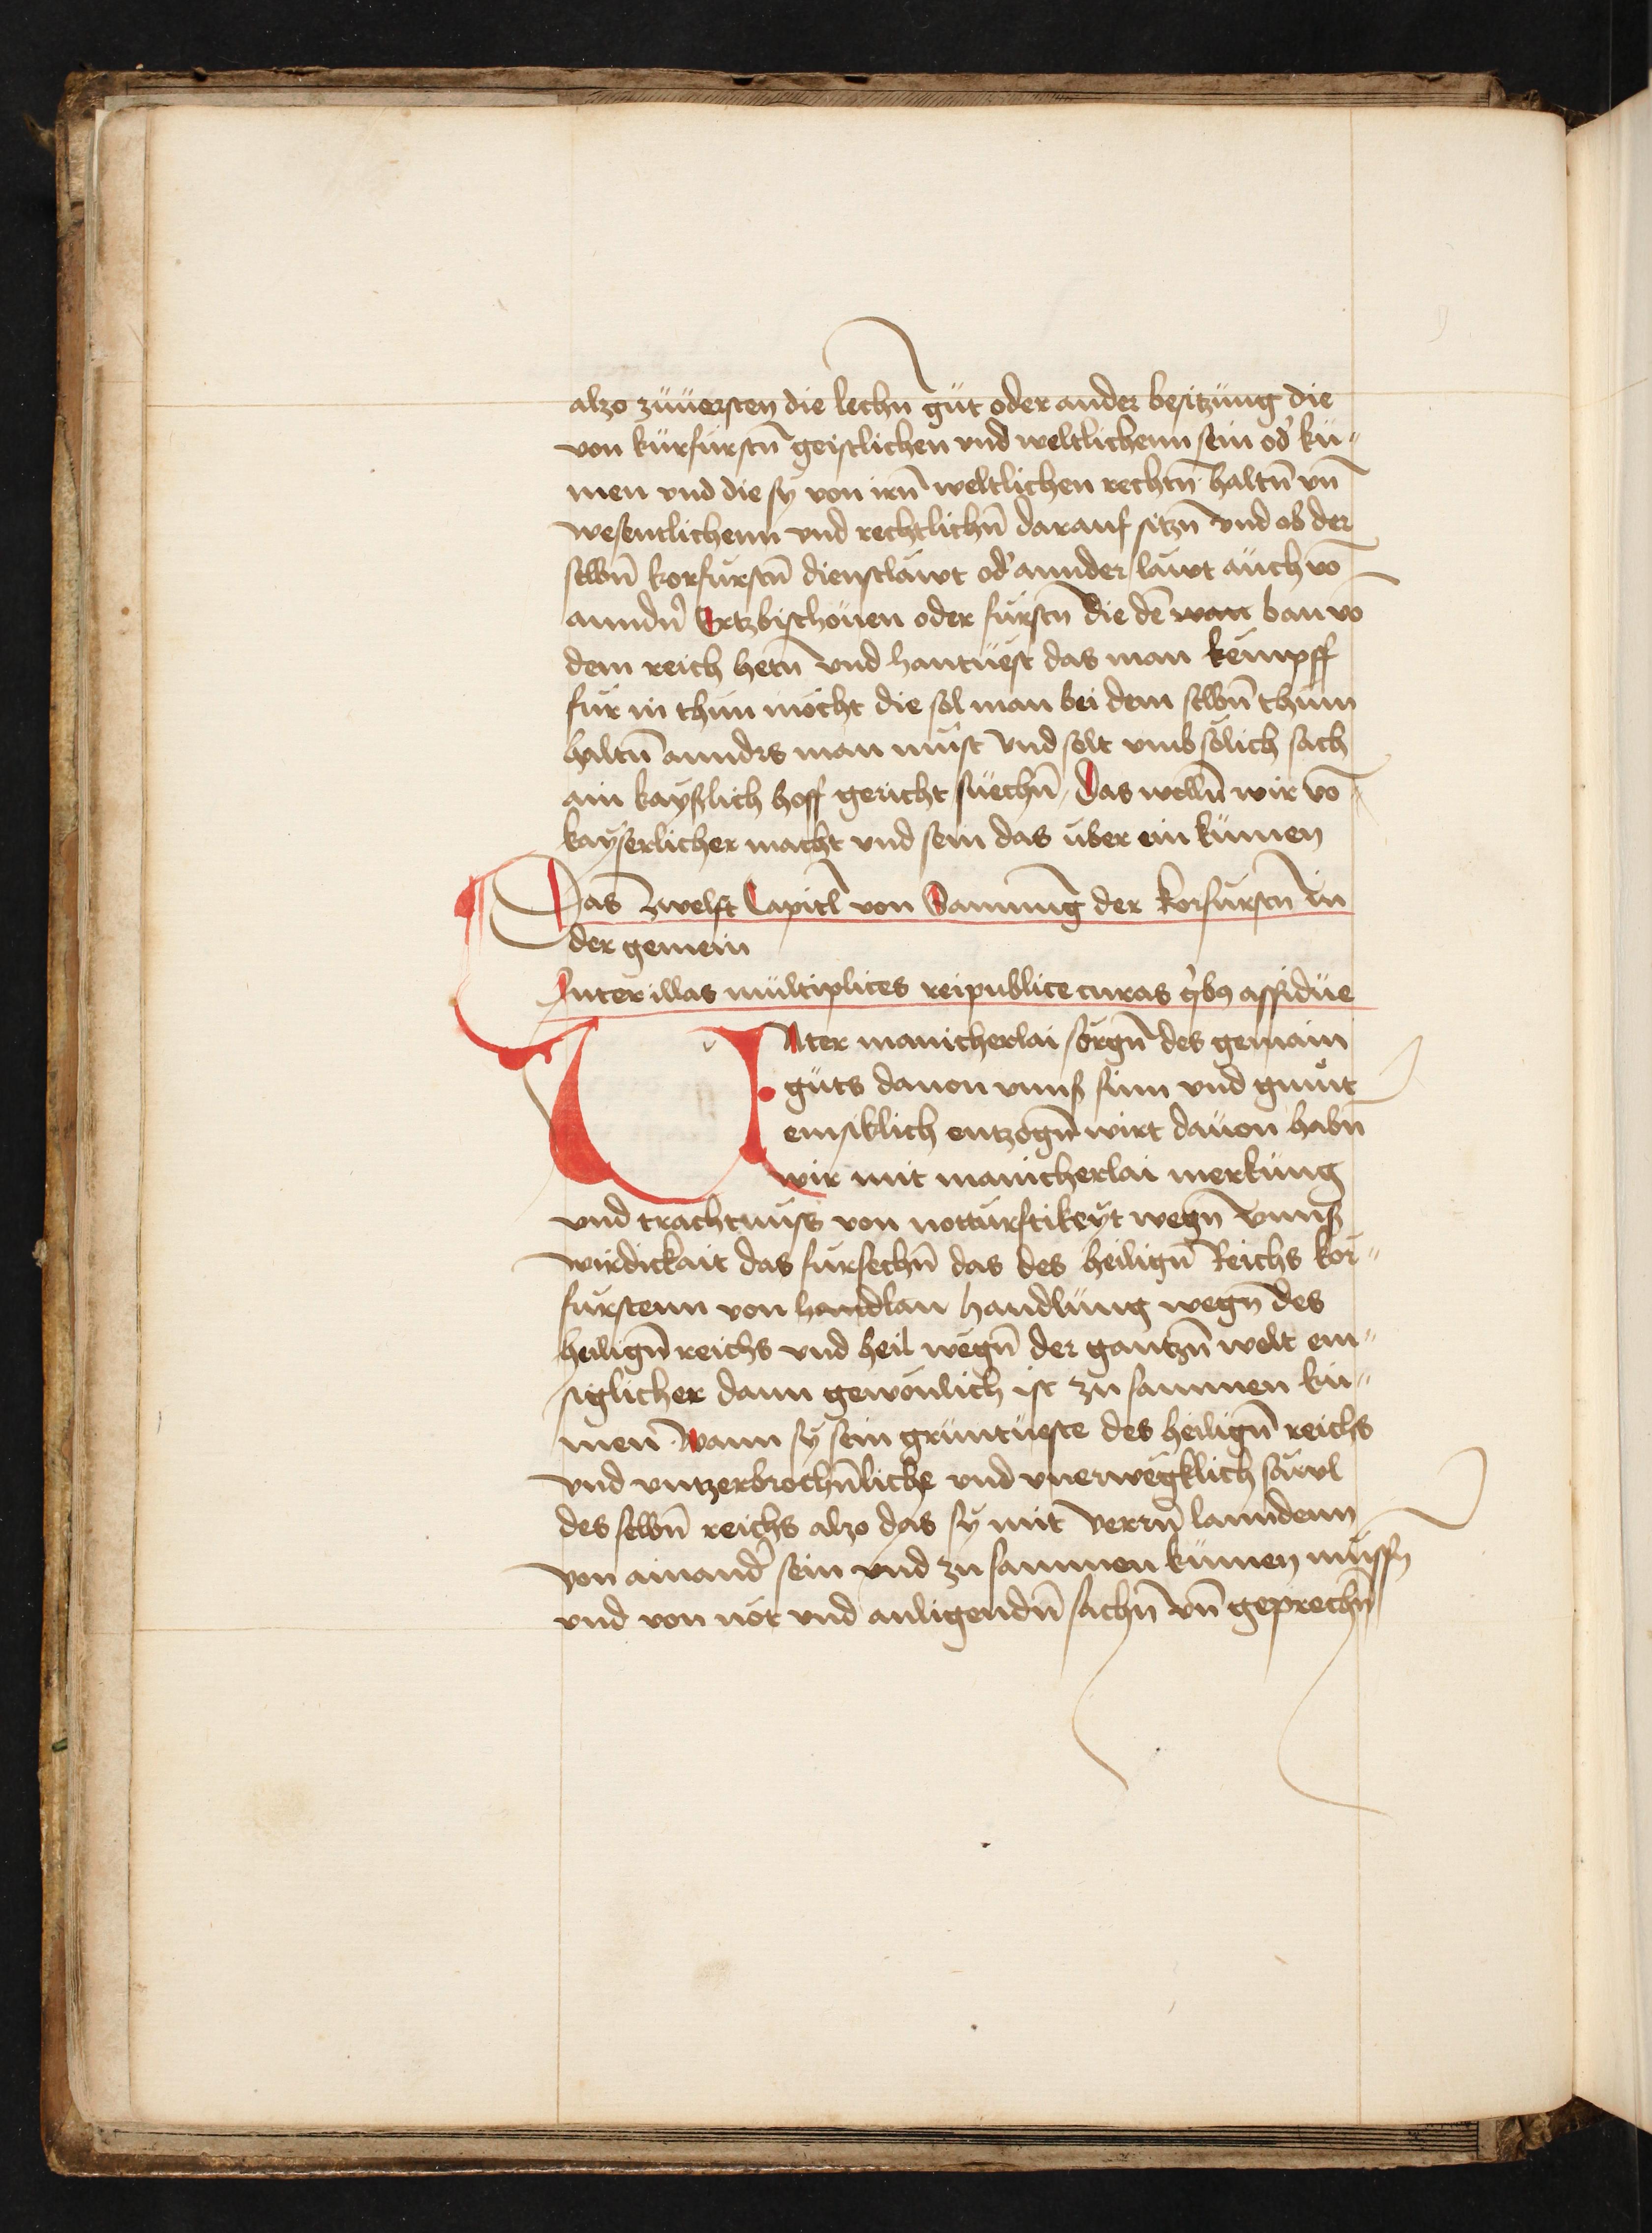 alzo züuersten die lechn̄ güt oder ander besitzüng die
von kürfürstn̄ geistlichen vnd weltlichenn sein od' kü„
men vnd die sÿ von irn̄ weltlichen rechtn̄ haltn̄ vn̄
wesentlichenn vnd rechtlichn̄ darauf sitzn̄ vnd ob der
selbn̄ korfürstn̄ dienstläwt od' annder läwt aüch vō
anndn̄ Ertzbischöuen oder fürstn̄ die dē wan ban vō
dem reich hetn̄ vnd hantüest das man kempff
für in thün möcht die sol man bei dem selbn̄ thüm
haltn̄ anndrs man müst vnd solt vmb sölich sach
ain kayßlich hoff gericht süechn̄ / Das welln̄ wir vō
kayserlicher macht vnd sein das über ein kümen
Das Zwelft Capitl von Samnūg der korfürstn̄ in
der gemein
Inter illas mültiplices reipublice curas q̇bꝰ assidüe
Vnter manicherlai sorgn̄ des gemain
güts dauon vnnß sinn vnd gmüt
emsiklich entzogn̄ wirt daüon habn̄
wir mit manicherlai merküng
vnd trachtnüss von notturftikeÿt wegn̄ vnnß
wirdickait das fürsechn̄ das des heilign̄ Reichs kor„
fürstenn von handlan handlüng wegn̄ des
heilign̄ reichs vnd heil wegn̄ der gantzn̄ welt em„
siglicher dann gewönlich ist zu sammen kü„
men Wann sÿ sein grüntüeste des heilign̄ reichs
vnd vntzerbrochn̄liche vnd vnerwegklich säwl
des selbn̄ reichs alzo das sÿ mit verrn̄ lanndenn
von ainand' sein vnd zu sammen kümen müssn̄
vnd von nöt vnd anligendn̄ sachn̄ vn̄ geprechn̄